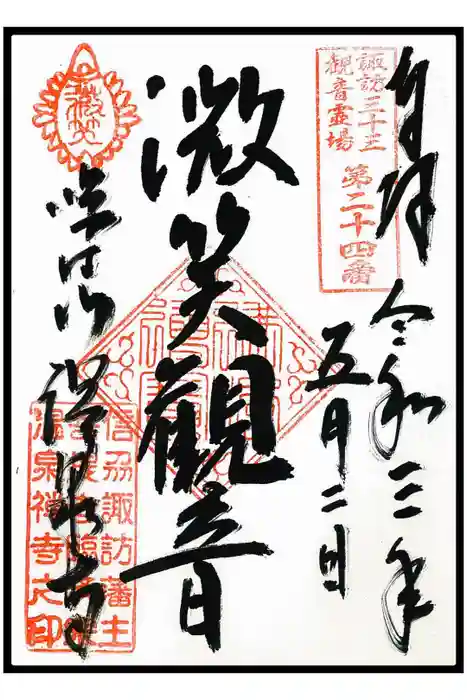 奉拝 令和三年
五月二日
諏訪三十三
観音霊場
第二十四番
微笑観音
微笑
温泉寺
信州諏訪藩主
温泉禅寺之印